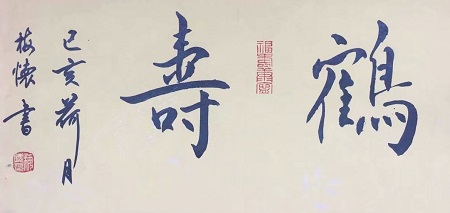 鶴壽
己亥荷月
梅懷書